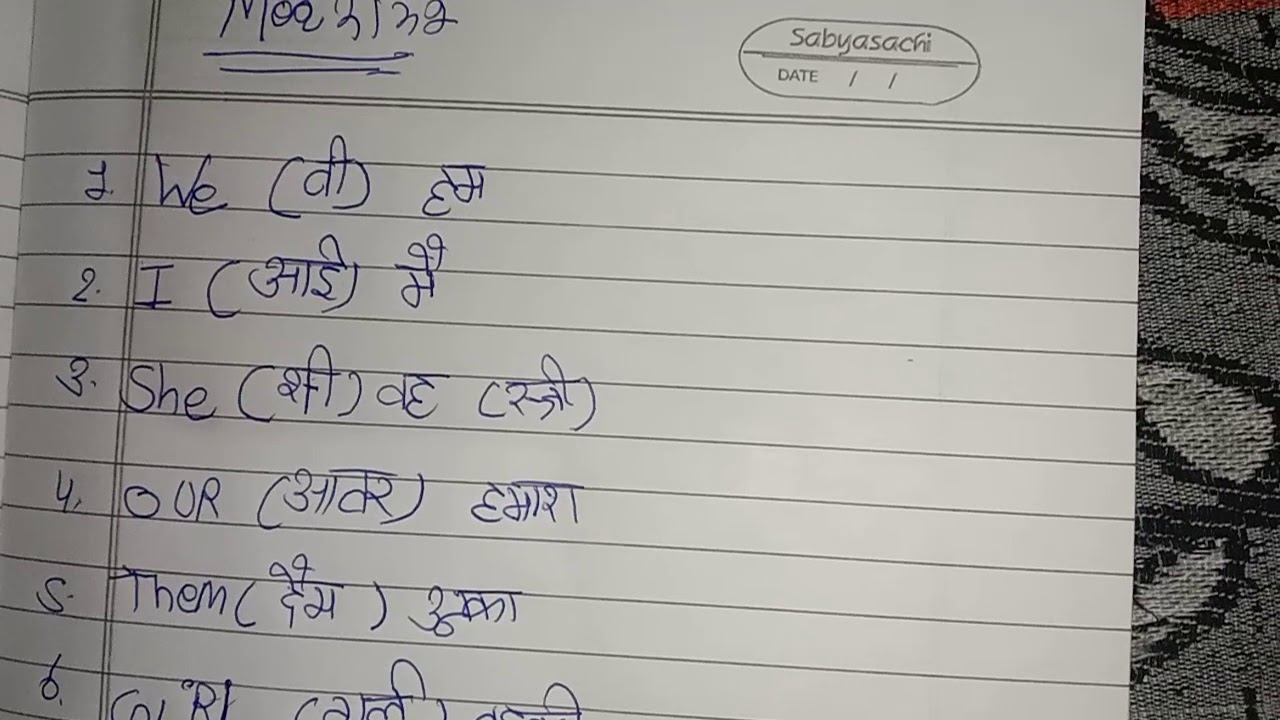 Sabyasachi
DATE / /
1. We (वी) हम
2. I (आई) मैं
3. She (शी) वह (स्त्री)
4. OUR (आवर) हमारा
5. Them (दैम)
6. GIRL (गर्ल)